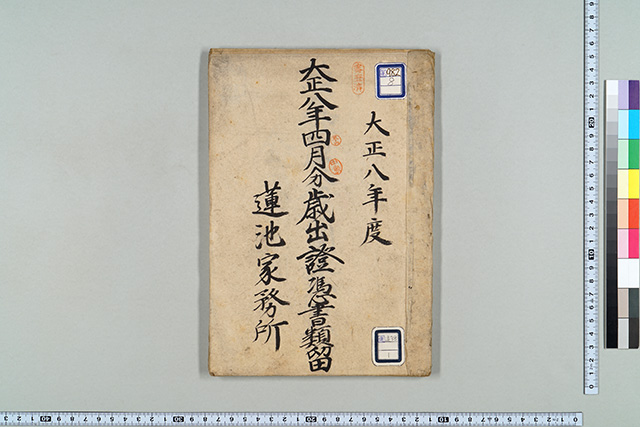 大正八年度
大正八年四月分歳出證憑書類留
蓮池家務所